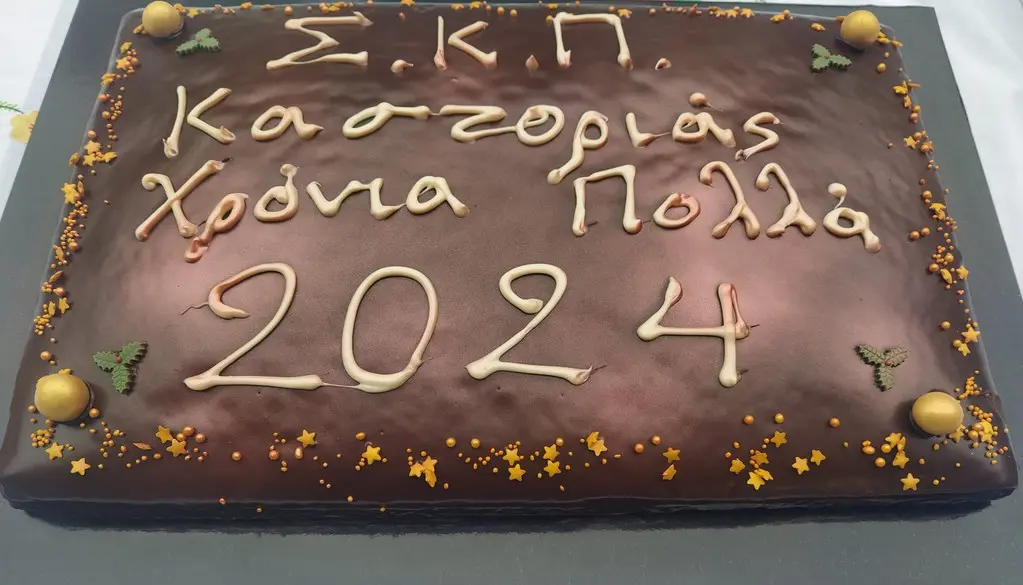 Σ.Κ.Π.
Καστοριάς
Χρόνια Πολλά
2024